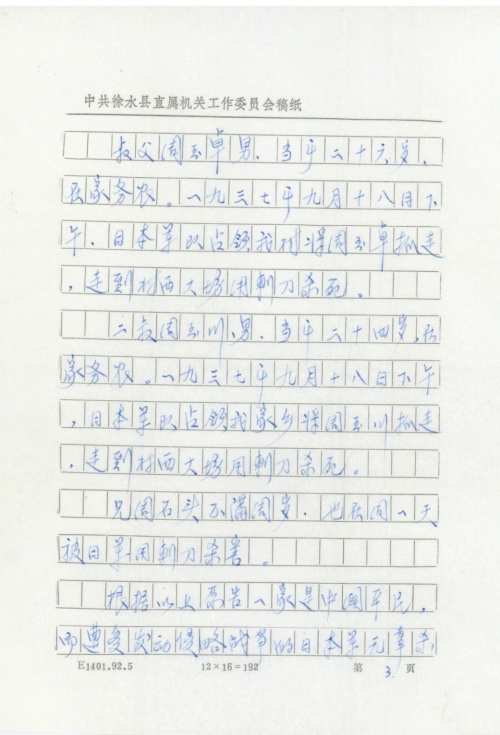 中共徐水县直属机关工作委员会稿纸
叔父周玉卓男.当年二十六岁,
在家务农。一九三七年九月十八日下
午,日本军队占领我村将周玉卓抓走
,走到村西大场用刺刀杀死。
二叔周玉川,男.当年二十四岁,在
家务农。一九三七年九月十八日下午
,日本军队占领我家乡将周玉川抓走
,走到村西大场用刺刀杀死。
兄周石头不满周岁.也在同一天
被日军用刺刀杀害。
根据以上原告一家是中国平民,
而遭受发动侵略战争的日本军无辜杀
E1401.92.5 12×16=192 第 3. 页